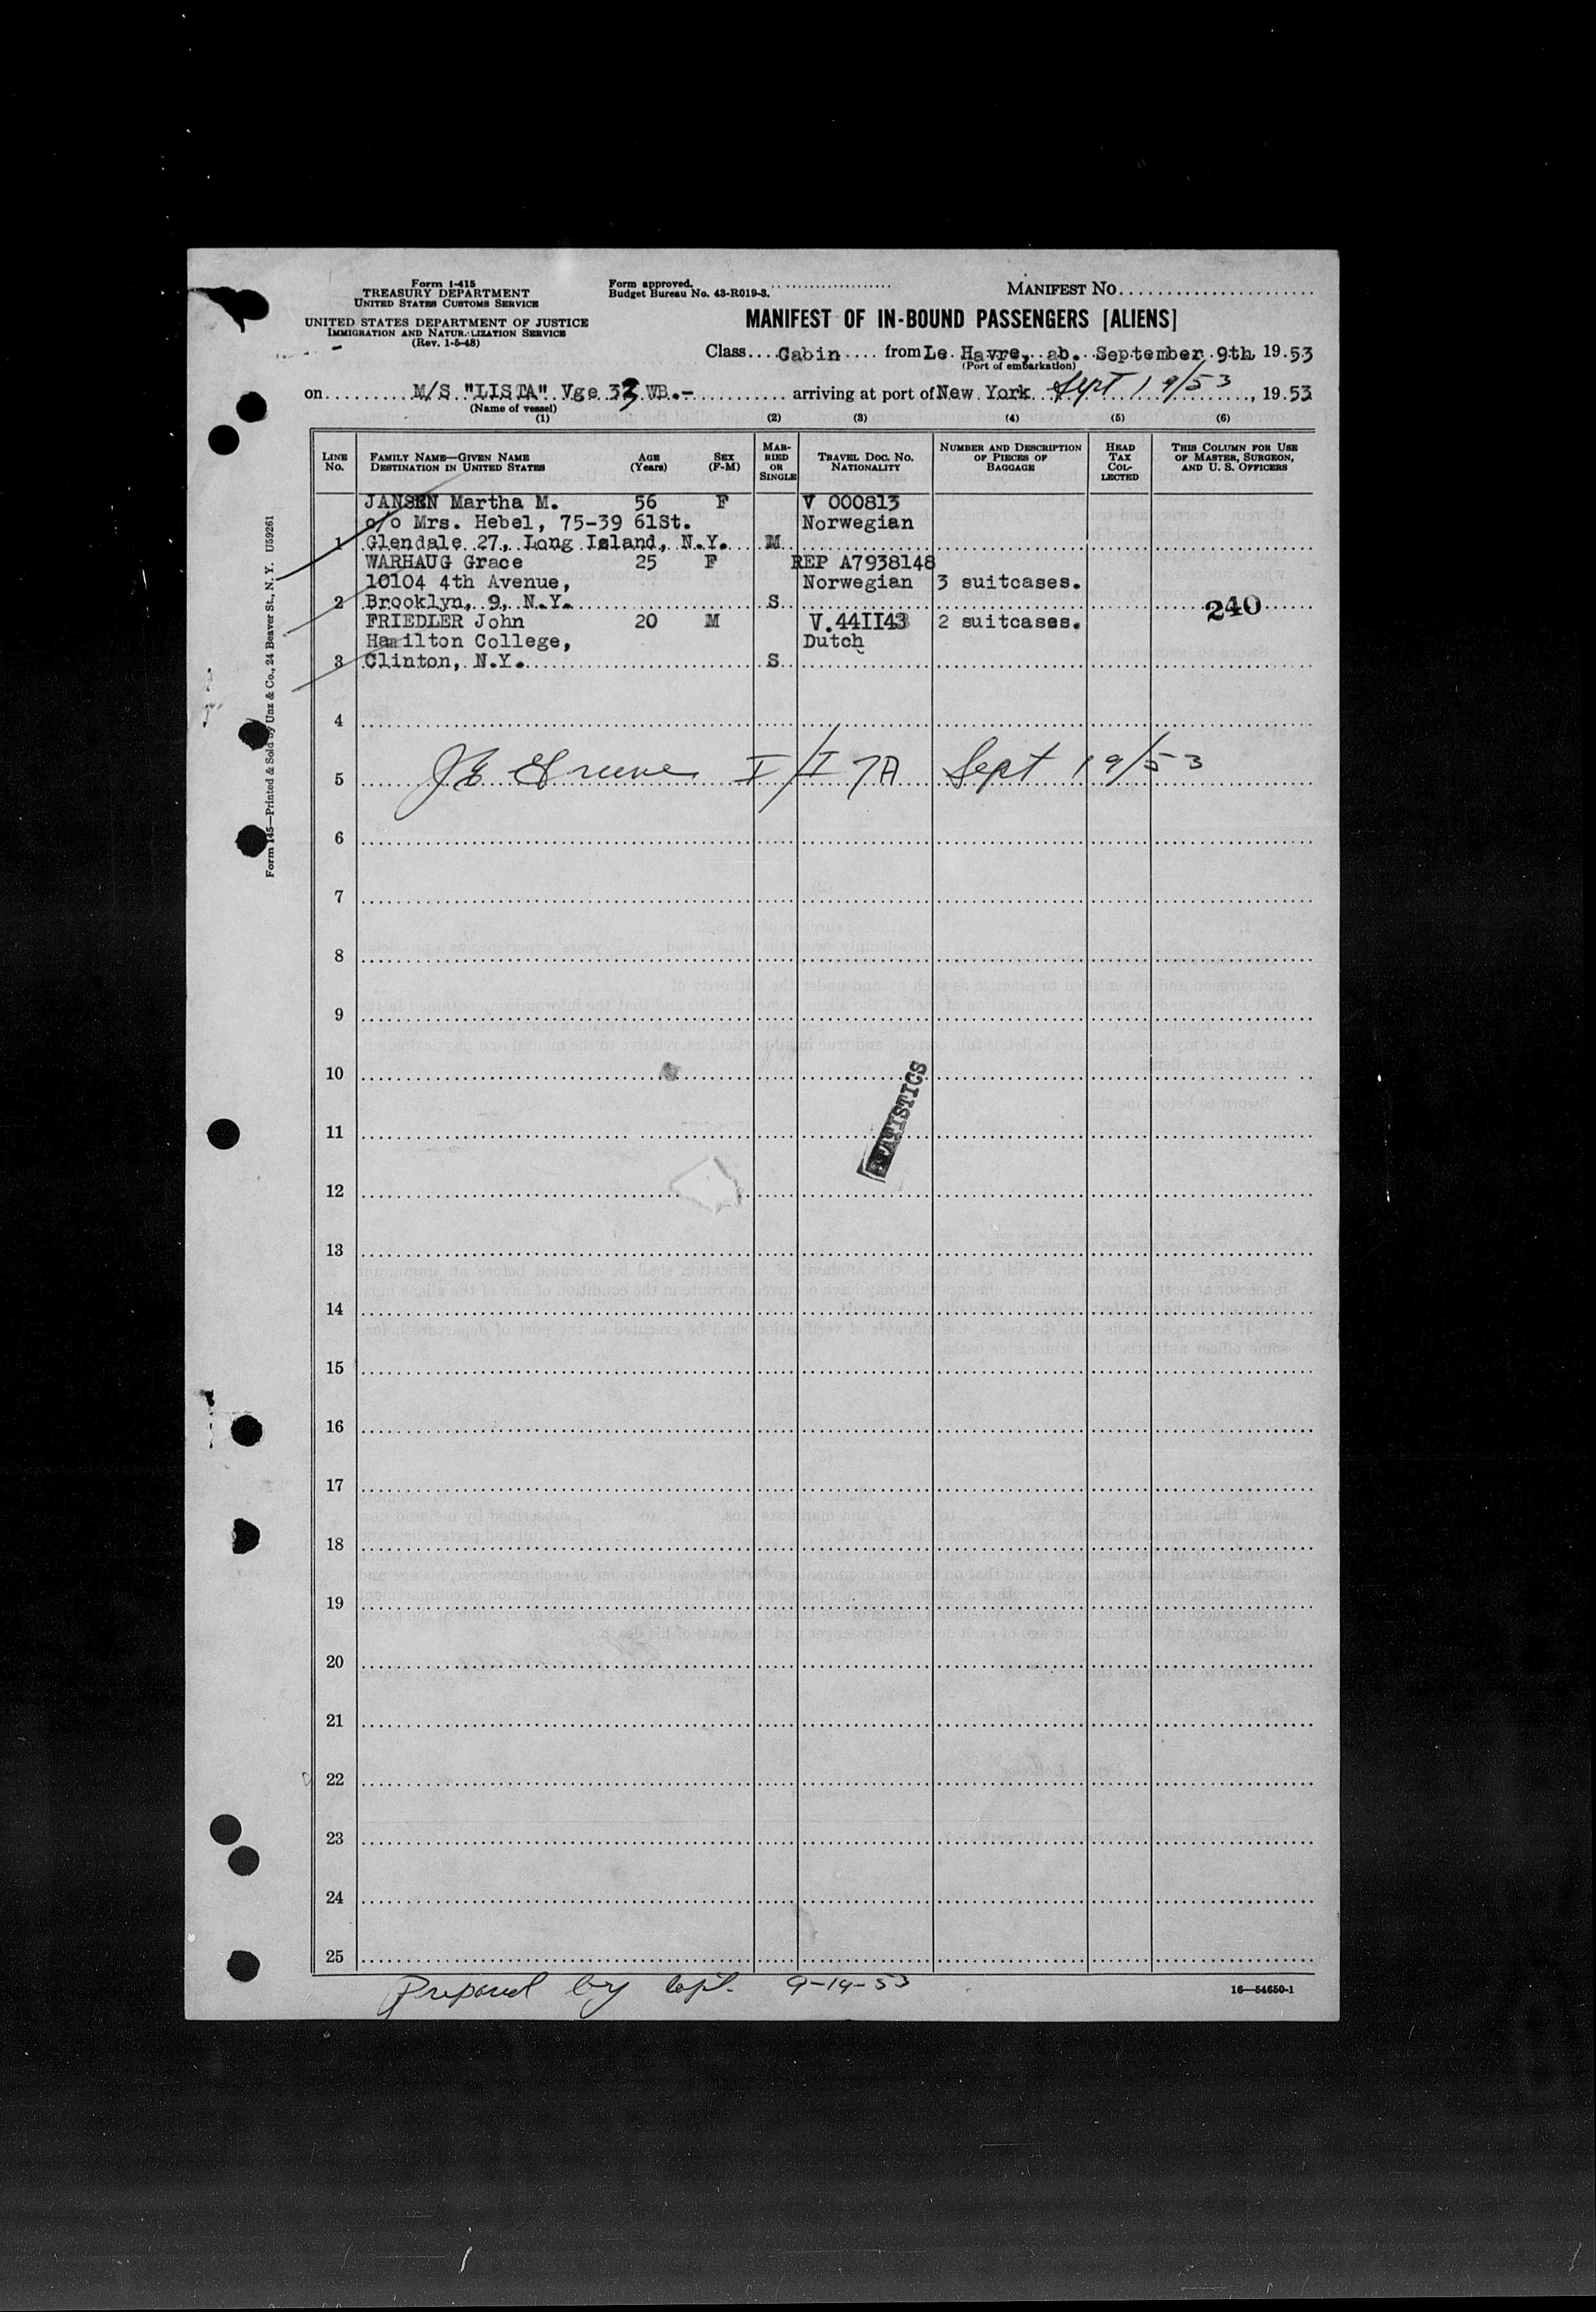 Form I-415
TREASURY DEPARTMENT
UNITED STATES CUSTOMS SERVICE
UNITED STATES DEPARTMENT OF JUSTICE
IMMIGRATION AND NATURALIZATION SERVICE
(Rev. 1-5-48)
Form approved.
Budget Bureau No. 43-R019-3.
MANIFEST NO.
MANIFEST OF IN-BOUND PASSENGERS [ALIENS]
Class Cabin from Le Havre, ab. September 9th, 1953
(Port of embarkation)
on M/S "LISTA" Vge 33 WB.- arriving at port of New York Sept 19/53, 1953
(Name of vessel)
(1) (2) (3) (4) (5) (6)
LINE NO. FAMILY NAME—GIVEN NAME DESTINATION IN UNITED STATES AGE (Years) SEX (F-M) MARRIED OR SINGLE TRAVEL DOC. NO. NATIONALITY NUMBER AND DESCRIPTION OF PIECES OF BAGGAGE HEAD TAX COLLECTED THIS COLUMN FOR USE OF MASTER, SURGEON, AND U. S. OFFICERS
JANSEN Martha M. 56 F V 000813
c/o Mrs. Hebel, 75-39 61St. Norwegian
1 Glendale 27, Long Island, N.Y. M
WARHAUG Grace 25 F REP A7938148
10104 4th Avenue, Norwegian 3 suitcases.
2 Brooklyn, 9, N.Y. S 240
FRIEDLER John 20 M V.44II43 2 suitcases.
Hamilton College, Dutch
3 Clinton, N.Y. S
4
5 J E Greene I/I 7A Sept 19/53
6
7
8
9
10
11
STATISTICS
12
13
14
15
16
17
18
19
20
21
22
23
24
25
Prepared by Capt. 9-19-53
16—54650-1
Form 145—Printed & Sold by Unz & Co., 24 Beaver St., N. Y. U59261